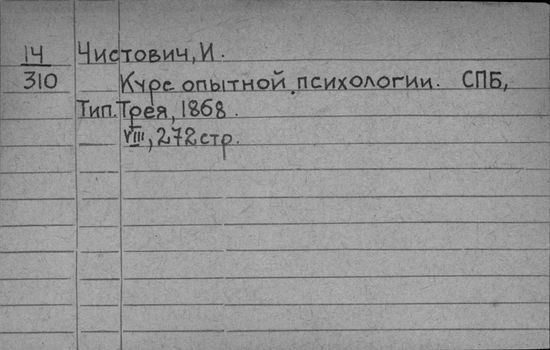 14 Чистович, И.
310 Курс опытной психологии. СПБ,
Тип. Трея, 1868.
VIII, 272 стр.